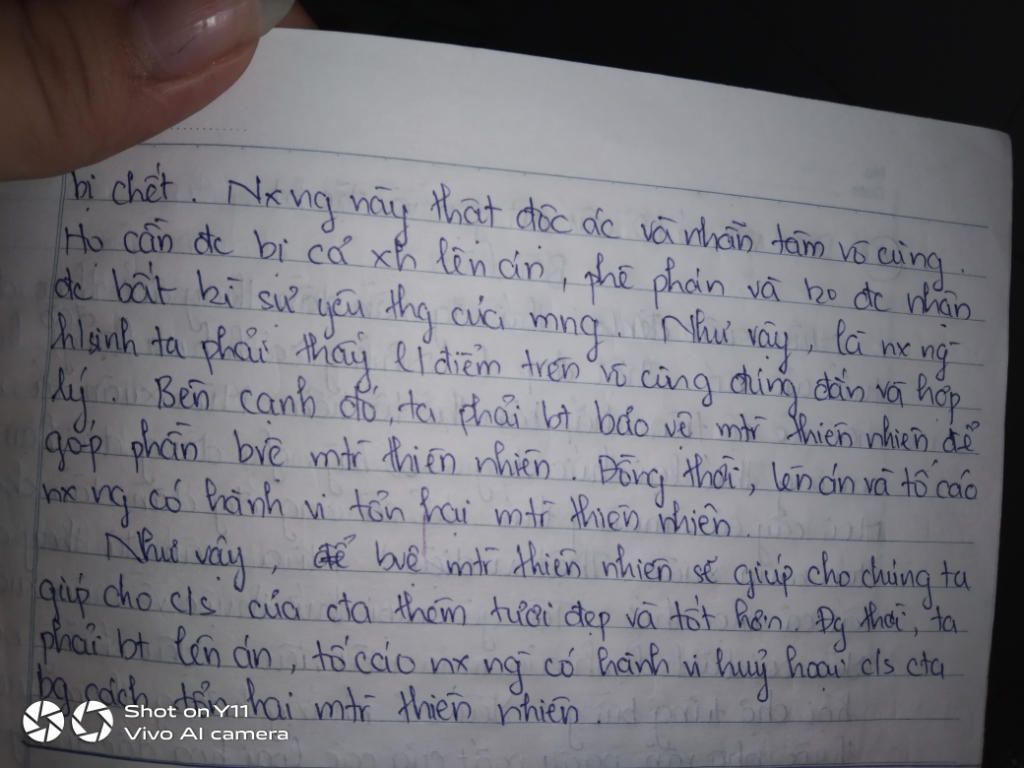 bị chết. Nx ng này thật độc ác và nhẫn tâm vô cùng.
Họ cần đc bị cả xh lên án, phê phán và ko đc nhận
đc bất kì sự yêu thg của mng. Như vậy, là nx ng
hlsinh ta phải thấy l1 điểm trên vô cùng đúng đắn và hợp
lý. Bên cạnh đó, ta phải bt bảo vệ mtr thiên nhiên để
góp phần bvệ mtr thiên nhiên. Đồng thời, lên án và tố cáo
nx ng có hành vi tổn hại mtr thiên nhiên.
Như vậy, để bvệ mtr thiên nhiên sẽ giúp cho chúng ta
giúp cho c/s của cta thêm tươi đẹp và tốt hơn. Đg thời, ta
phải bt lên án, tố cáo nx ng có hành vi huỷ hoại c/s cta
bg cách tổn hại mtr thiên nhiên.
Shot on Y11
Vivo AI camera